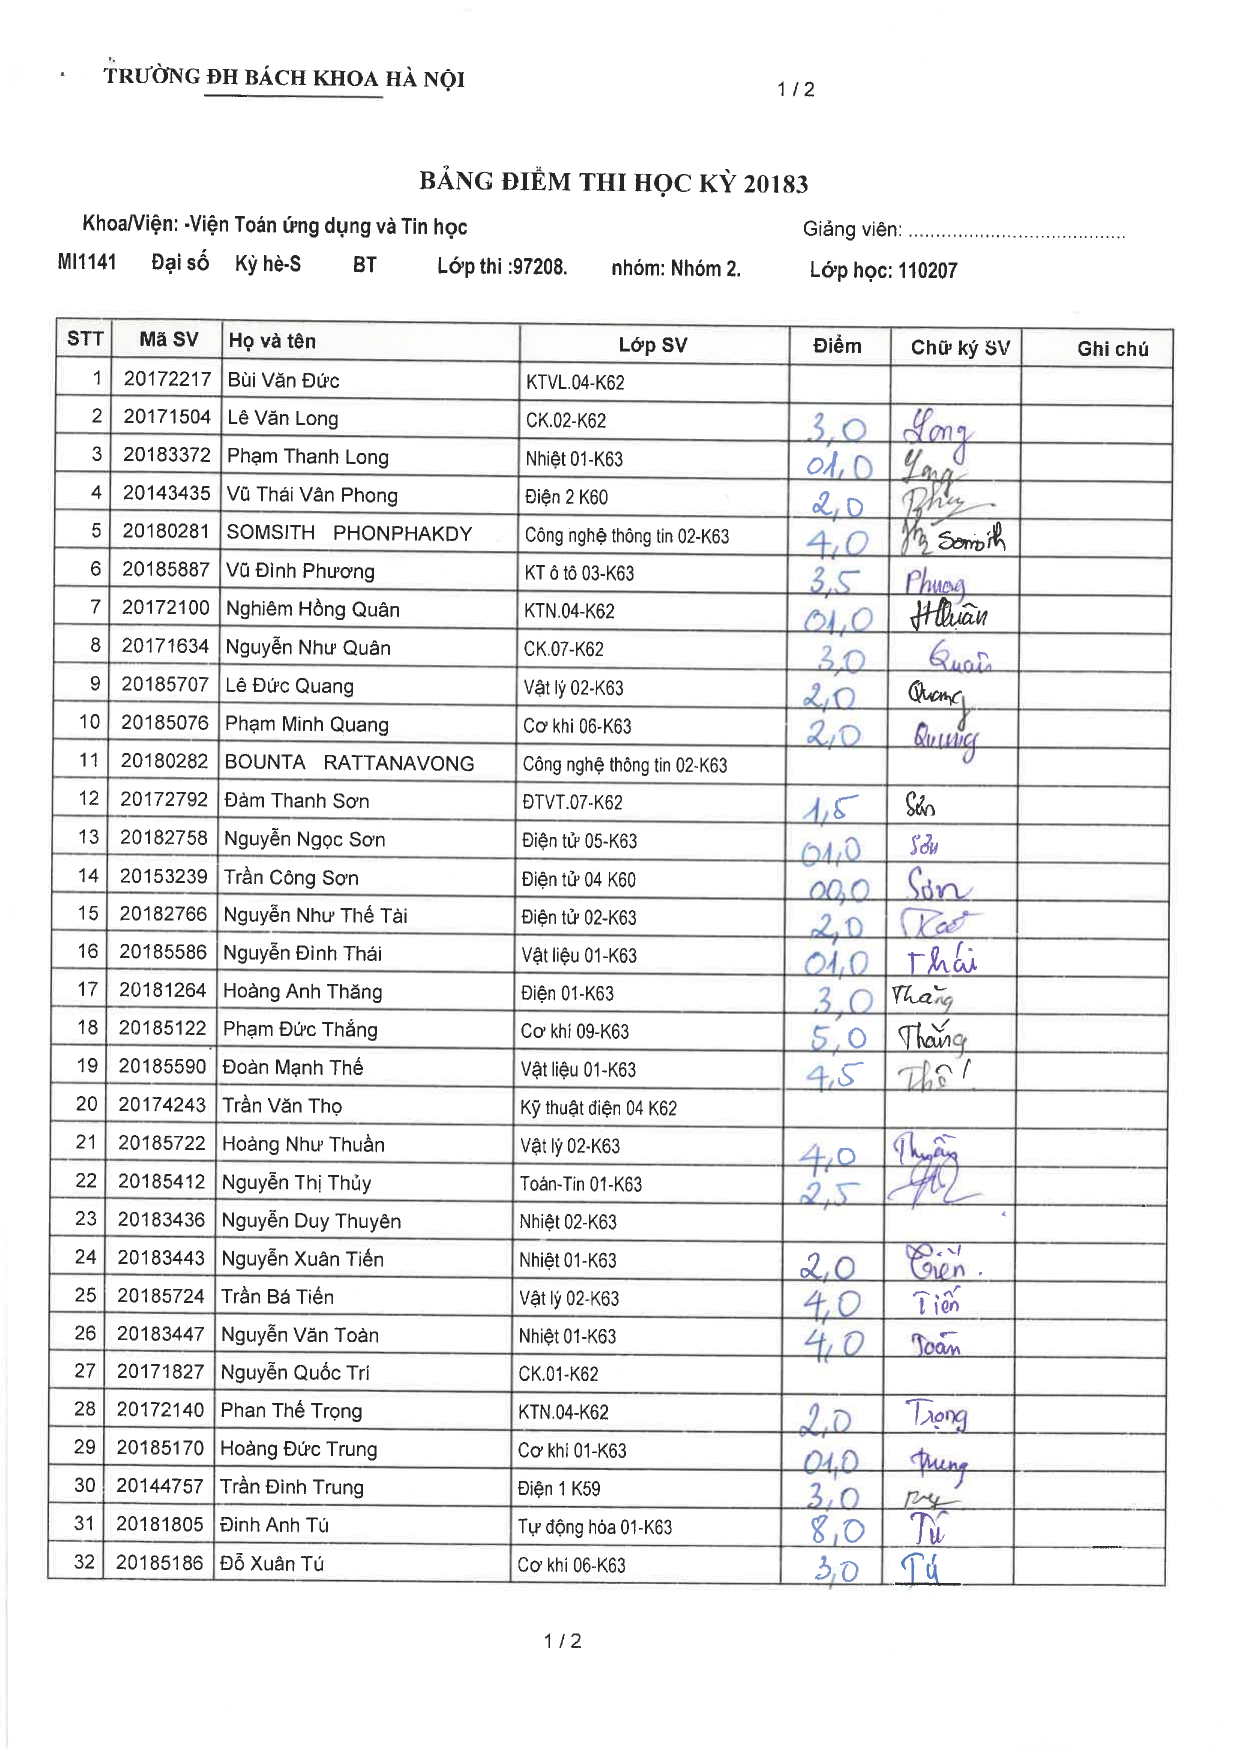 TRƯỜNG ĐH BÁCH KHOA HÀ NỘI
1 / 2
BẢNG ĐIỂM THI HỌC KỲ 20183
Khoa/Viện: -Viện Toán ứng dụng và Tin học Giảng viên: ........................................
MI1141 Đại số Kỳ hè-S BT Lớp thi :97208. nhóm: Nhóm 2. Lớp học: 110207
STT Mã SV Họ và tên Lớp SV Điểm Chữ ký SV Ghi chú
1 20172217 Bùi Văn Đức KTVL.04-K62
2 20171504 Lê Văn Long CK.02-K62 3,0 Long
3 20183372 Phạm Thanh Long Nhiệt 01-K63 01,0 Long
4 20143435 Vũ Thái Vân Phong Điện 2 K60 2,0
5 20180281 SOMSITH PHONPHAKDY Công nghệ thông tin 02-K63 4,0 Somsith
6 20185887 Vũ Đình Phương KT ô tô 03-K63 3,5 Phuong
7 20172100 Nghiêm Hồng Quân KTN.04-K62 01,0 HQuân
8 20171634 Nguyễn Như Quân CK.07-K62 3,0 Quân
9 20185707 Lê Đức Quang Vật lý 02-K63 2,0 Quang
10 20185076 Phạm Minh Quang Cơ khí 06-K63 2,0 Quang
11 20180282 BOUNTA RATTANAVONG Công nghệ thông tin 02-K63
12 20172792 Đàm Thanh Sơn ĐTVT.07-K62 1,5 Sơn
13 20182758 Nguyễn Ngọc Sơn Điện tử 05-K63 01,0 Sơn
14 20153239 Trần Công Sơn Điện tử 04 K60 00,0 Sơn
15 20182766 Nguyễn Như Thế Tài Điện tử 02-K63 2,0
16 20185586 Nguyễn Đình Thái Vật liệu 01-K63 01,0 Thái
17 20181264 Hoàng Anh Thăng Điện 01-K63 3,0 Thăng
18 20185122 Phạm Đức Thắng Cơ khí 09-K63 5,0 Thắng
19 20185590 Đoàn Mạnh Thế Vật liệu 01-K63 4,5 Thế
20 20174243 Trần Văn Thọ Kỹ thuật điện 04 K62
21 20185722 Hoàng Như Thuần Vật lý 02-K63 4,0 Thuần
22 20185412 Nguyễn Thị Thủy Toán-Tin 01-K63 2,5
23 20183436 Nguyễn Duy Thuyên Nhiệt 02-K63
24 20183443 Nguyễn Xuân Tiến Nhiệt 01-K63 2,0 Tiến.
25 20185724 Trần Bá Tiến Vật lý 02-K63 4,0 Tiến
26 20183447 Nguyễn Văn Toàn Nhiệt 01-K63 4,0 Toàn
27 20171827 Nguyễn Quốc Trí CK.01-K62
28 20172140 Phan Thế Trọng KTN.04-K62 2,0 Trọng
29 20185170 Hoàng Đức Trung Cơ khí 01-K63 01,0 Trung
30 20144757 Trần Đình Trung Điện 1 K59 3,0
31 20181805 Đinh Anh Tú Tự động hóa 01-K63 8,0 Tú
32 20185186 Đỗ Xuân Tú Cơ khí 06-K63 3,0 Tú
1 / 2